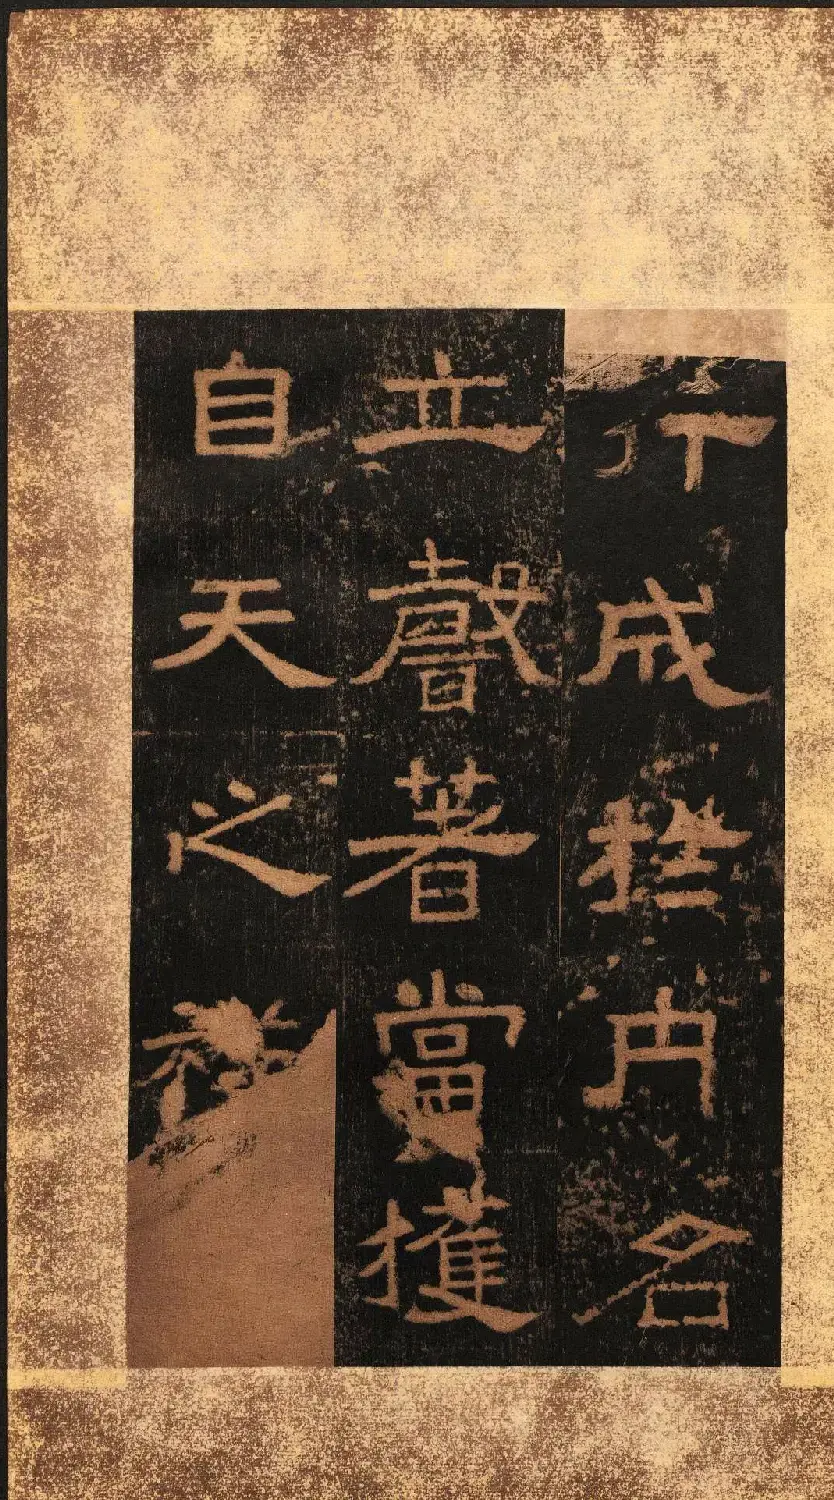 行成於内名
立聲著當獲
自天之